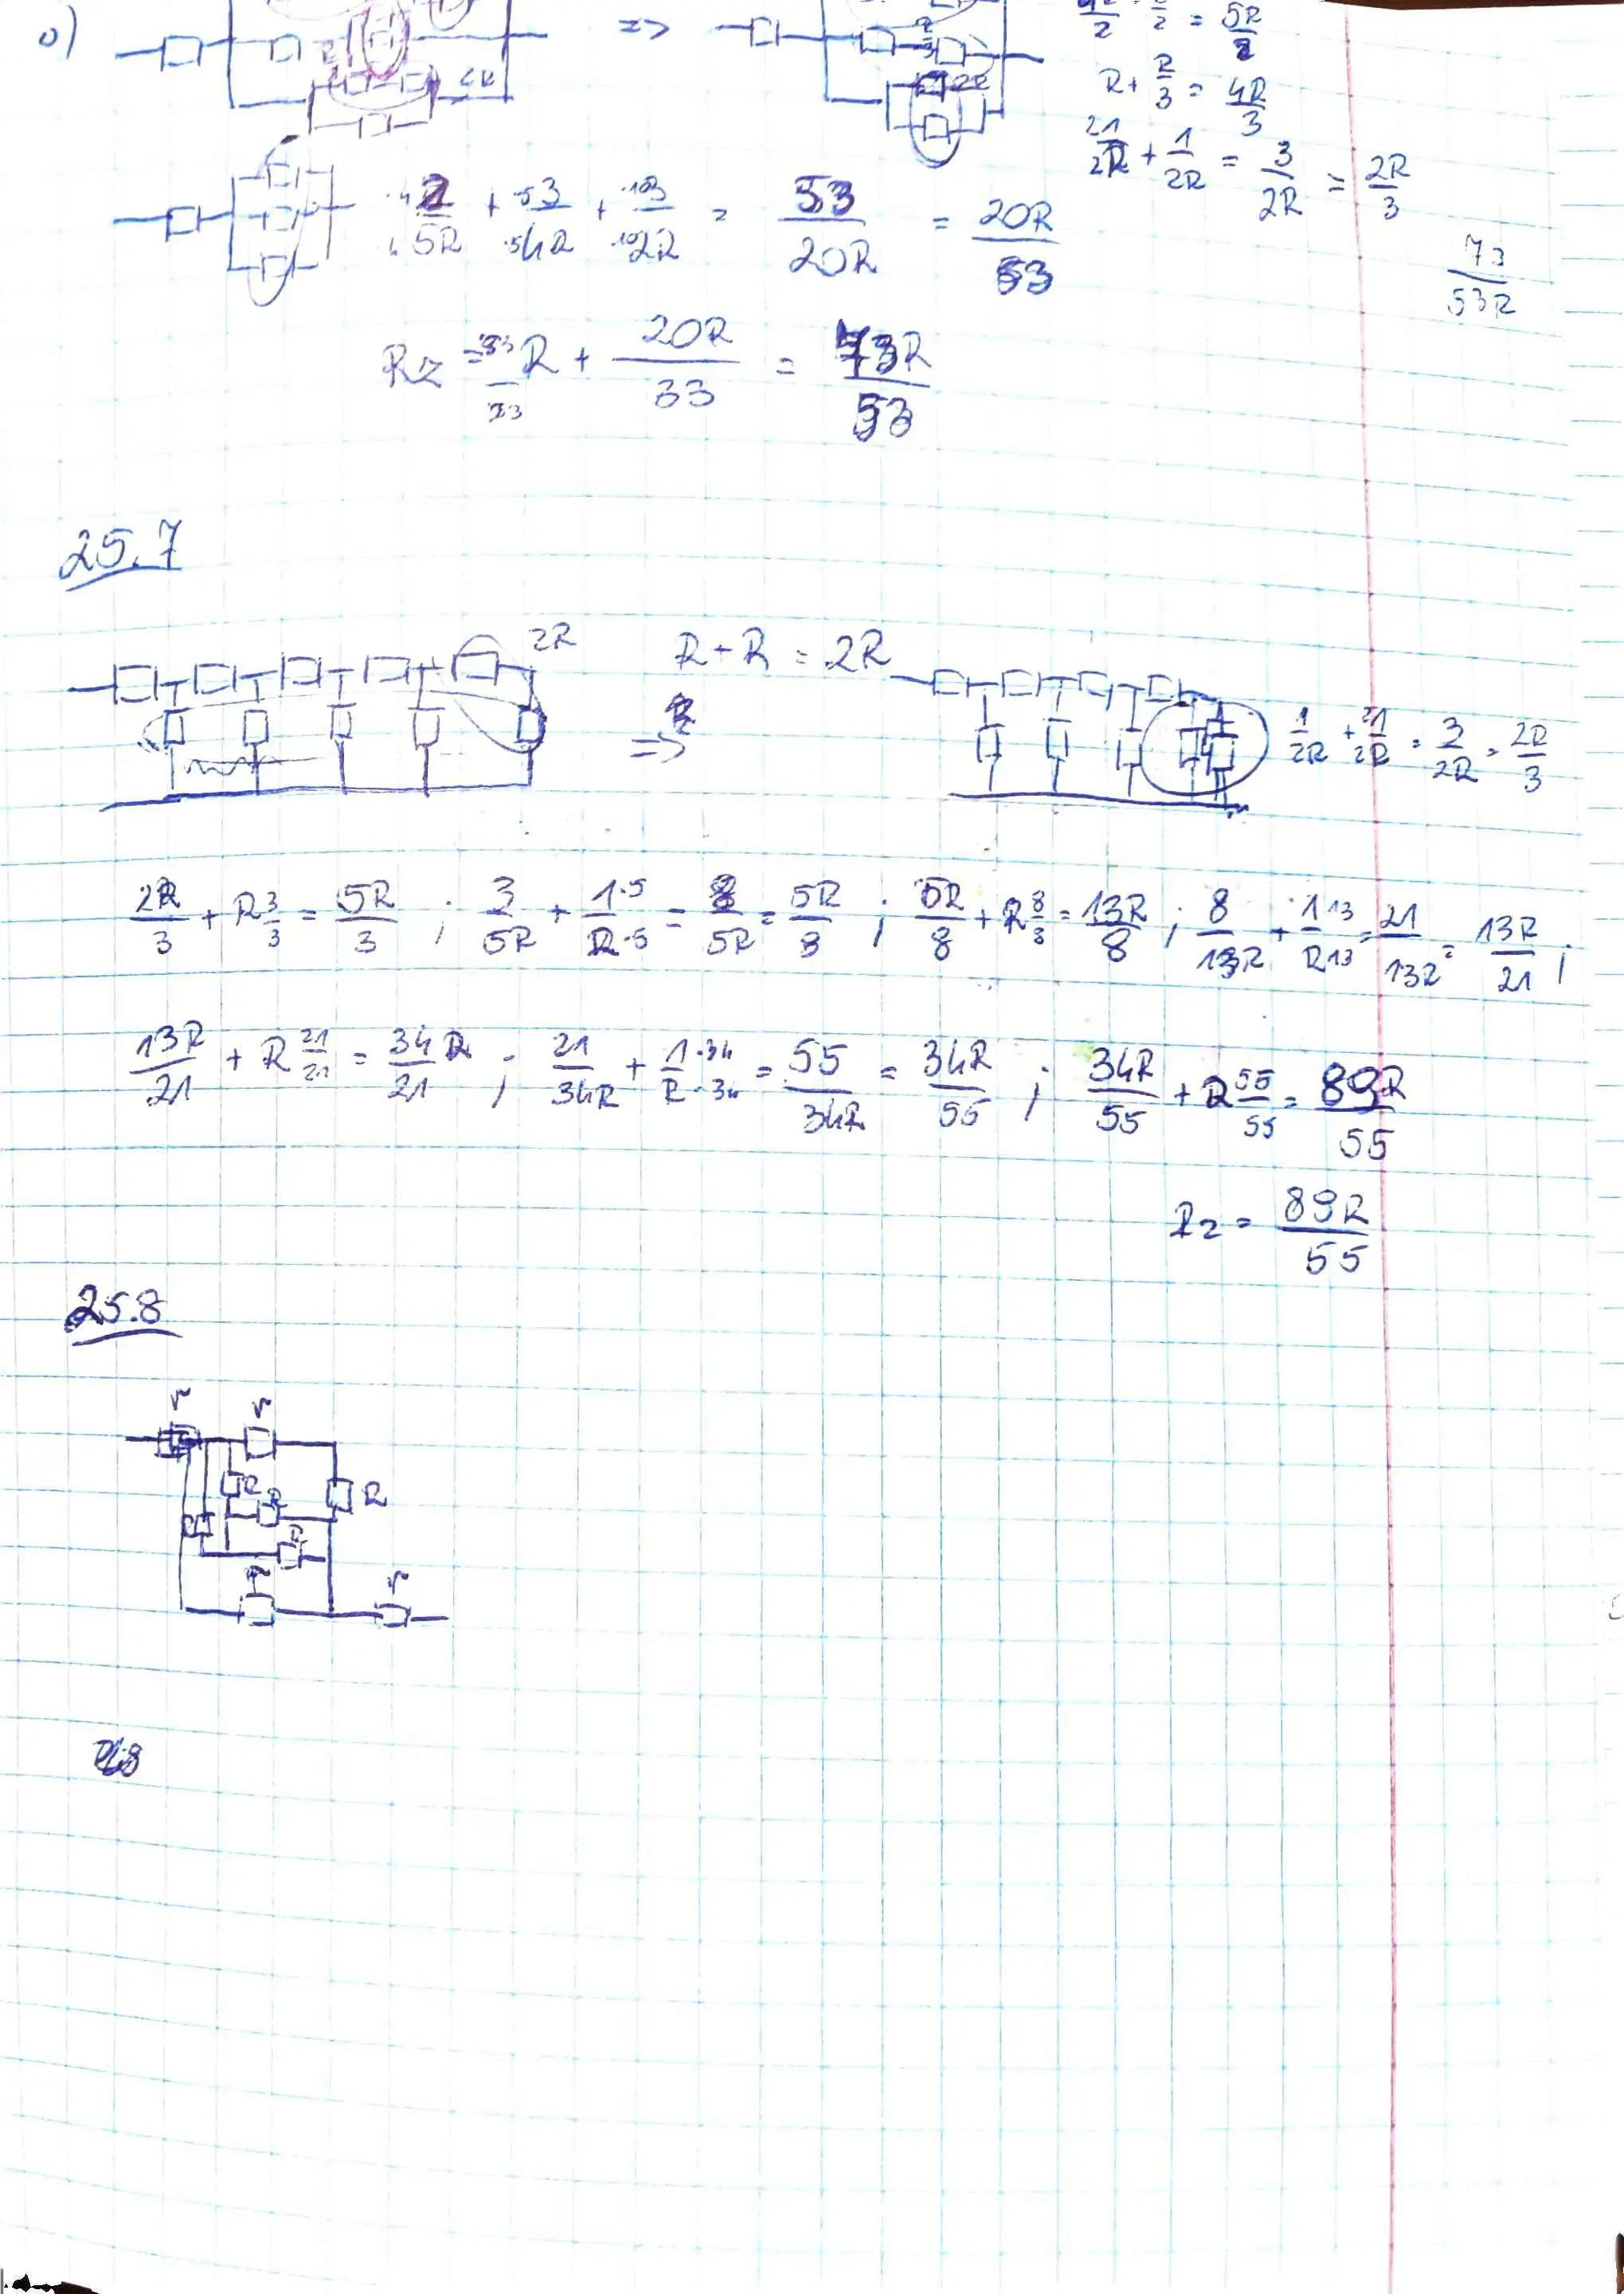 c)
R 2R => 5R/2
R + R/3 = 4R/3
2·1/2R + 1/2R = 3/2R = 2R/3
·4 2/·4 5R + ·5 3/·5 4R + ·10 3/·10 2R = 53/20R = 20R/53
73/53R
Rz = R + 20R/33 = 73R/53
25.7
2R R + R = 2R
=> 1/2R + 2·1/2R = 3/2R = 2R/3
2R/3 + R 3/3 = 5R/3 ; 3/5R + 1·5/R·5 = 8/5R = 5R/8 ; 5R/8 + R 8/8 = 13R/8 ; 8/13R + 1·13/R13 = 21/13R = 13R/21 ;
13R/21 + R 21/21 = 34R/21 ; 21/34R + 1·34/R·34 = 55/34R = 34R/55 ; 34R/55 + R 55/55 = 89R/55
Rz = 89R/55
25.8
r r
R R
R
R R
r r